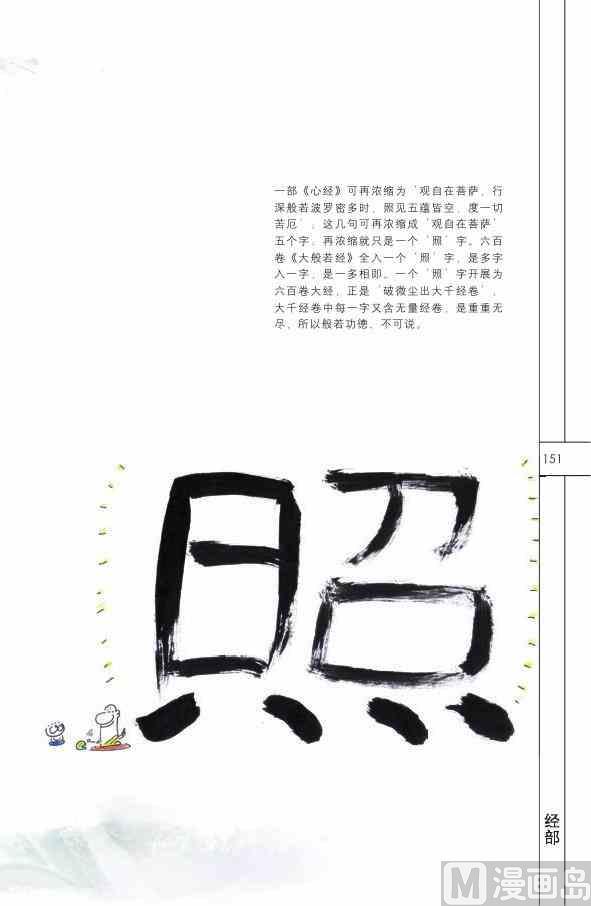 一部《心经》可再浓缩为‘观自在菩萨、行
深般若波罗密多时、照见五蕴皆空、度一切
苦厄’，这几句可再浓缩成‘观自在菩萨’
五个字，再浓缩就只是一个‘照’字。六百
卷《大般若经》全入一个‘照’字，是多字
入一字，是一多相即。一个‘照’字开展为
六百卷大经，正是‘破微尘出大千经卷’，
大千经卷中每一字又含无量经卷，是重重无
尽、所以般若功德、不可说。
151
照
经部
M漫画岛